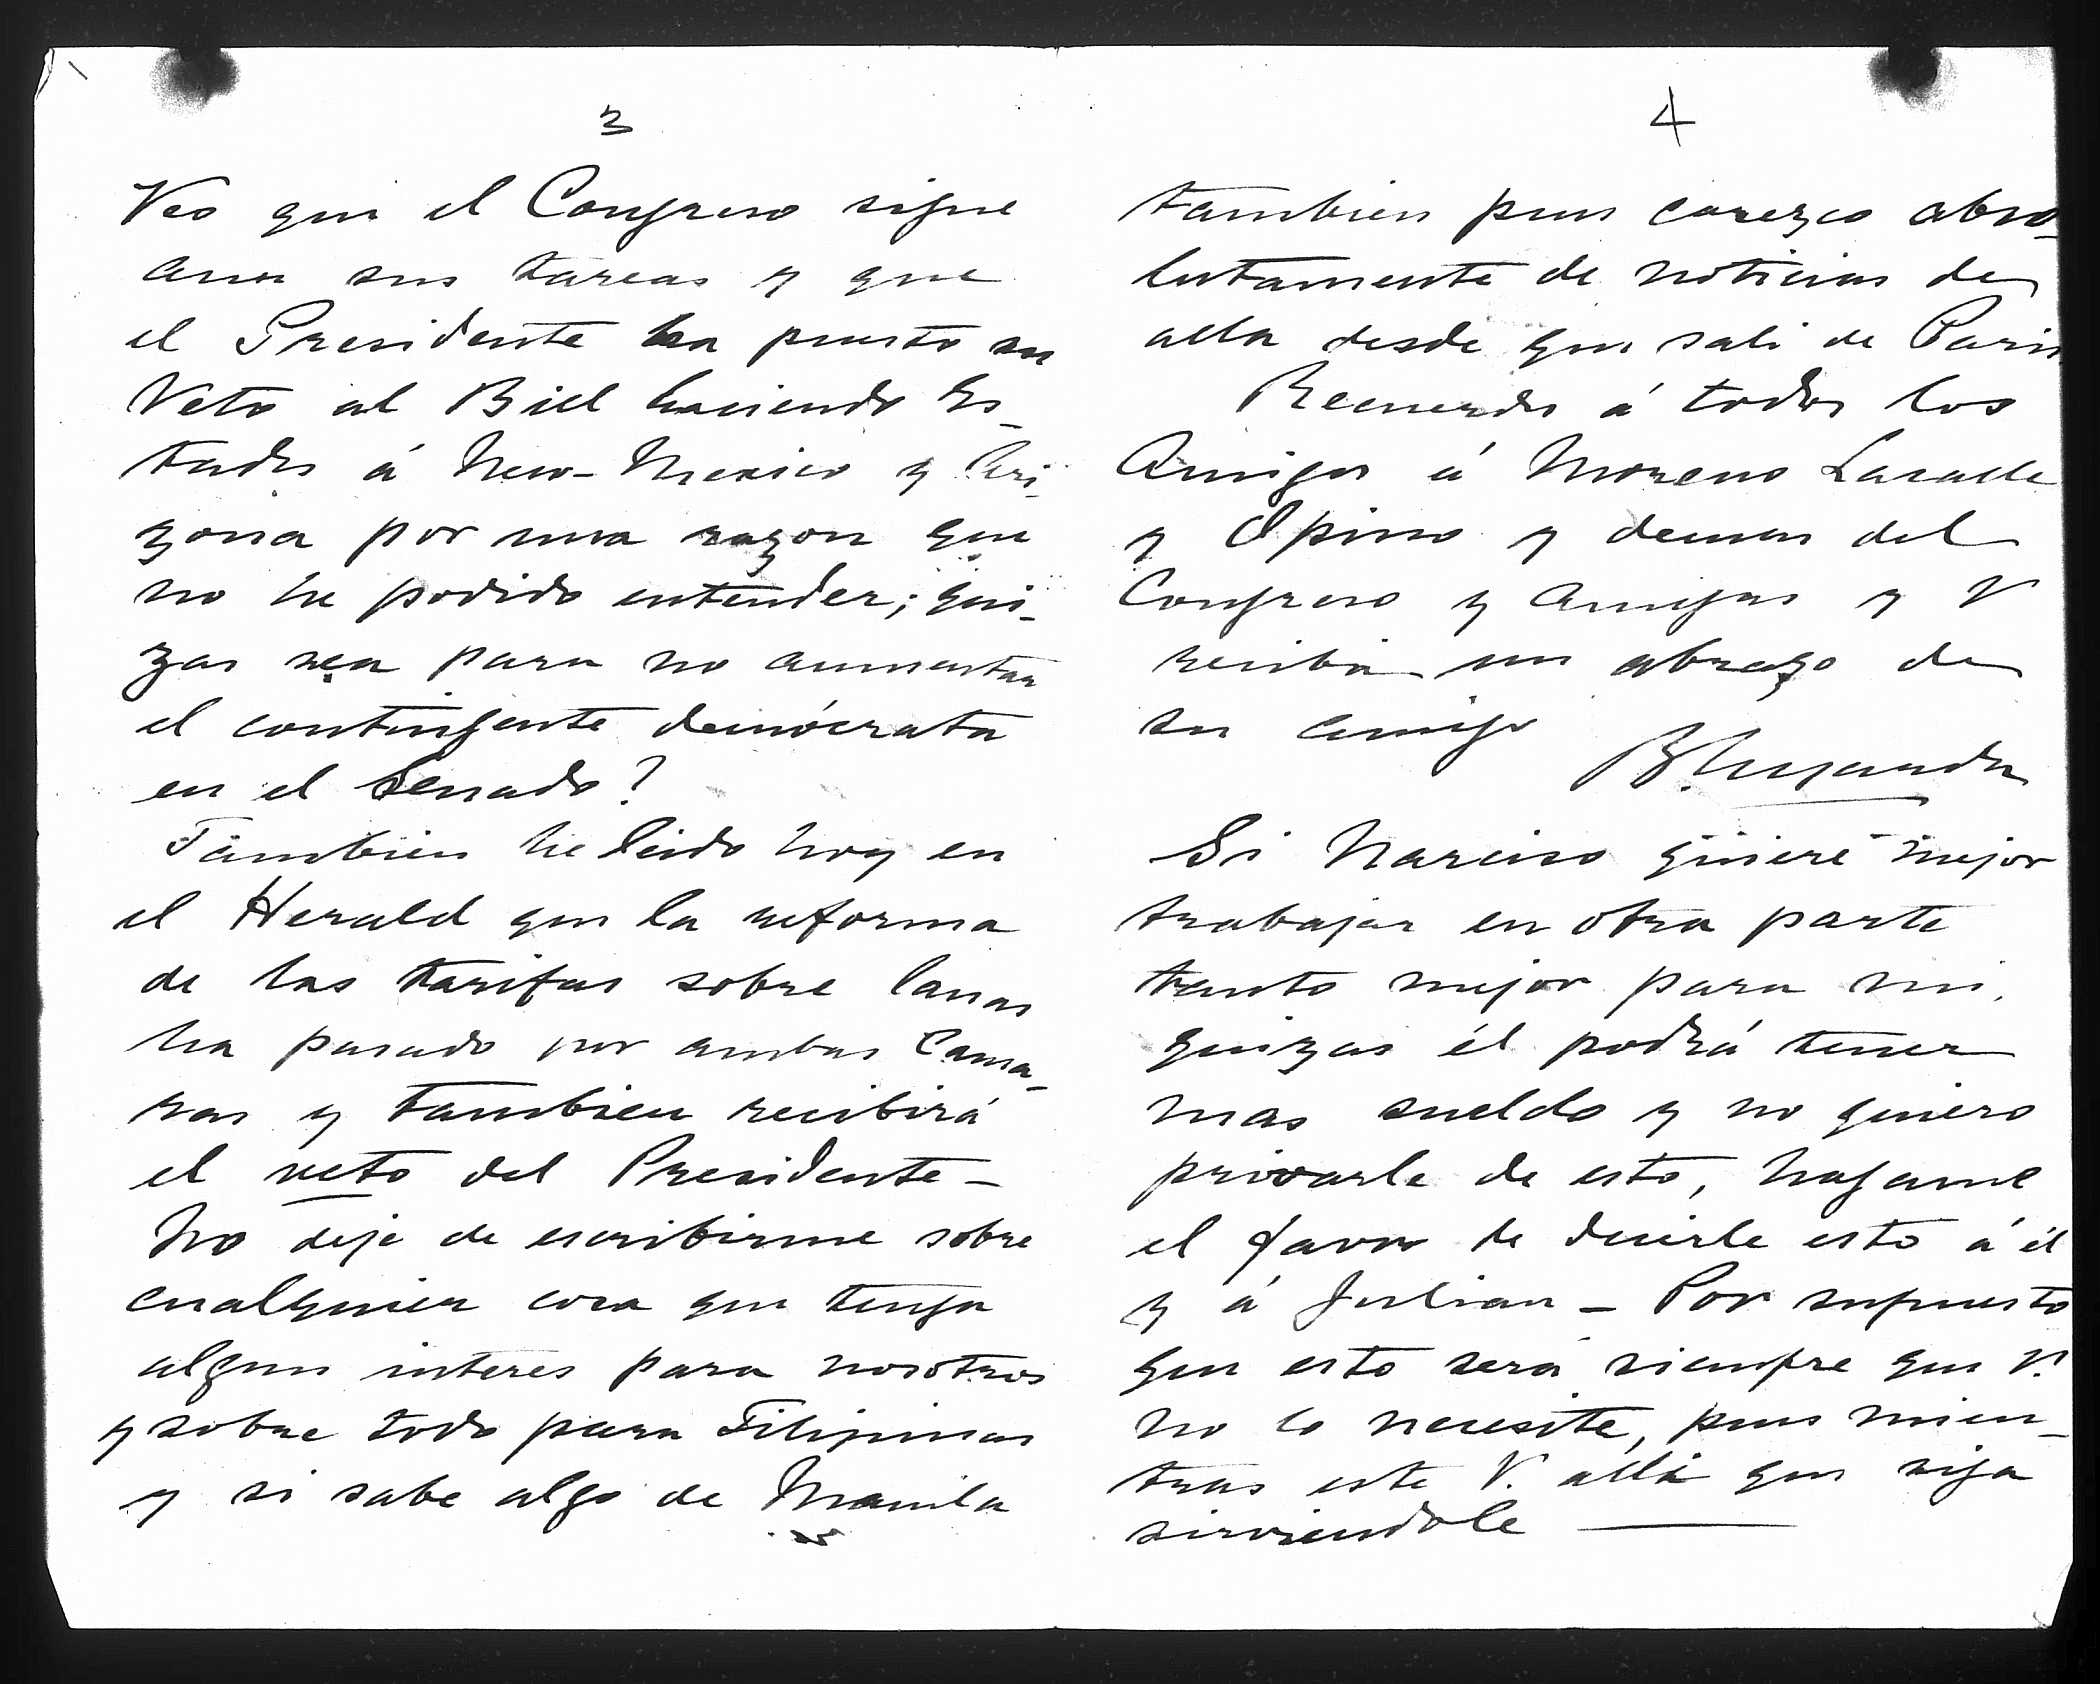 3
Veo que el Congreso sigue
aun sus tareas y que
el Presidente ha puesto su
Veto al Biel haciendo Es-
tados á New-Mexico y Ari-
zona por una razon que
no he podido entender; qui-
zas sea para no aumentar
el contingente demócrata
en el Senado?
Tambien he leido hoy en
el Herald que la reforma
de las tarifas sobre lanas
ha pasado por ambas Cama-
ras y tambien recibirá
el veto del Presidente -
No deje de escribirme sobre
cualquier cosa que tenga
algun interes para nosotros
y sobre todo para Filipinas
y si sabe algo de Manila
4
tambien pues carezco abso-
lutamente de noticias de
alla desde que sali de Paris
Recuerdos á todos los
Amigos á Moreno Lacalle
y Opino y demas del
Congreso y Amigas y V
reciba un abrazo de
su amigo
Si Narciso quiere mejor
trabajar en otra parte
tanto mejor para mi,
quizas él podrá tener
mas sueldo y no quiero
privarle de esto, hagame
el favor de decirle esto á él
y á Julian - Por supuesto
que esto será siempre que V.
no lo necesite, pues mien-
tras este V. allá que siga
sirviendole